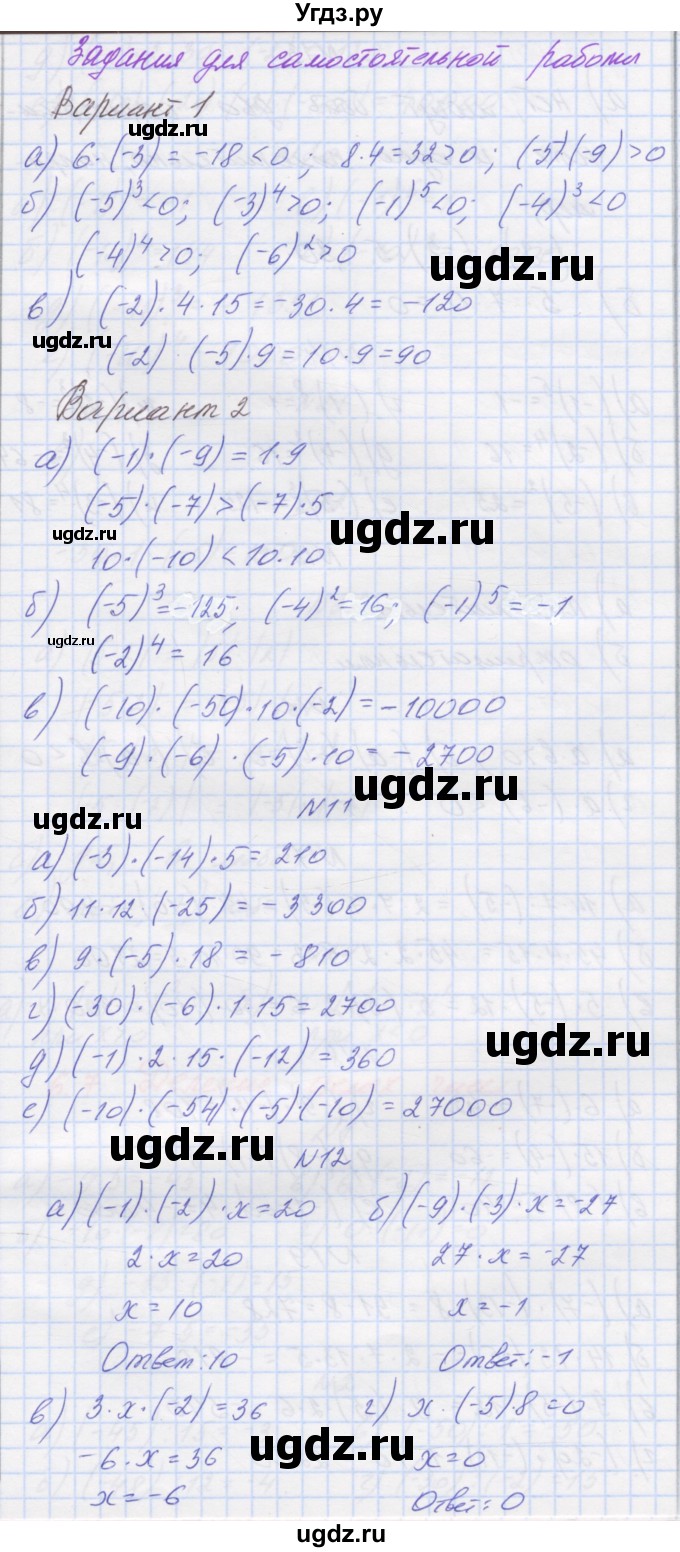 Угдз.ру
Задания для самостоятельной работы
Вариант 1
ugdz.ru
а) 6·(-3) = -18 < 0; 8·4 = 32 > 0; (-5)(-9) > 0
б) (-5)³ < 0; (-3)⁴ > 0; (-1)⁵ < 0; (-4)³ < 0
ugdz.ru
(-4)⁴ > 0; (-6)² > 0
ugdz.ru
в) (-2)·4·15 = -30·4 = -120
ugdz.ru
(-2)·(-5)·9 = 10·9 = 90
Вариант 2
а) (-1)·(-9) = 1·9
(-5)·(-7) > (-7)·5
ugdz.ru
ugdz.ru
10·(-10) < 10·10
б) (-5)³ = -125; (-4)² = 16; (-1)⁵ = -1
ugdz.ru
(-2)⁴ = 16
в) (-10)·(-50)·10·(-2) = -10000
(-9)·(-6)·(-5)·10 = -2700
ugdz.ru
N11
ugdz.ru
а) (-3)·(-14)·5 = 210
б) 11·12·(-25) = -3300
в) 9·(-5)·18 = -810
г) (-30)·(-6)·1·15 = 2700
ugdz.ru
д) (-1)·2·15·(-12) = 360
е) (-10)·(-54)·(-5)·(-10) = 27000
ugdz.ru
N12
а) (-1)·(-2)·x = 20 б) (-9)·(-3)·x = -27
2·x = 20 27·x = -27
x = 10 x = -1
Ответ: 10 Ответ: -1
в) 3·x·(-2) = 36 г) x·(-5)·8 = 0
ugdz.ru
-6·x = 36 x = 0
x = -6 Ответ: 0
ugdz.ru